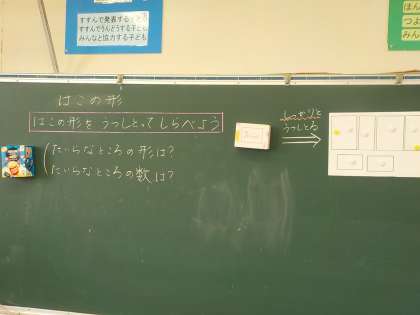 すすんで発表する子ども
すすんでうんどうする子ども
みんなと協力する子ども
ほん
つよ
みん
はこの形
はこの形を うつしとってしらべよう
たいらなところの形は?
たいらなところの数は?
うつしとる